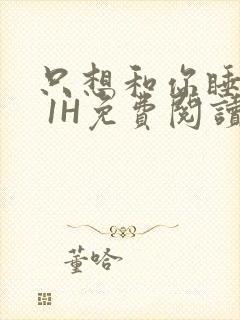 只想和你睡
1H免費閱讀
董哈